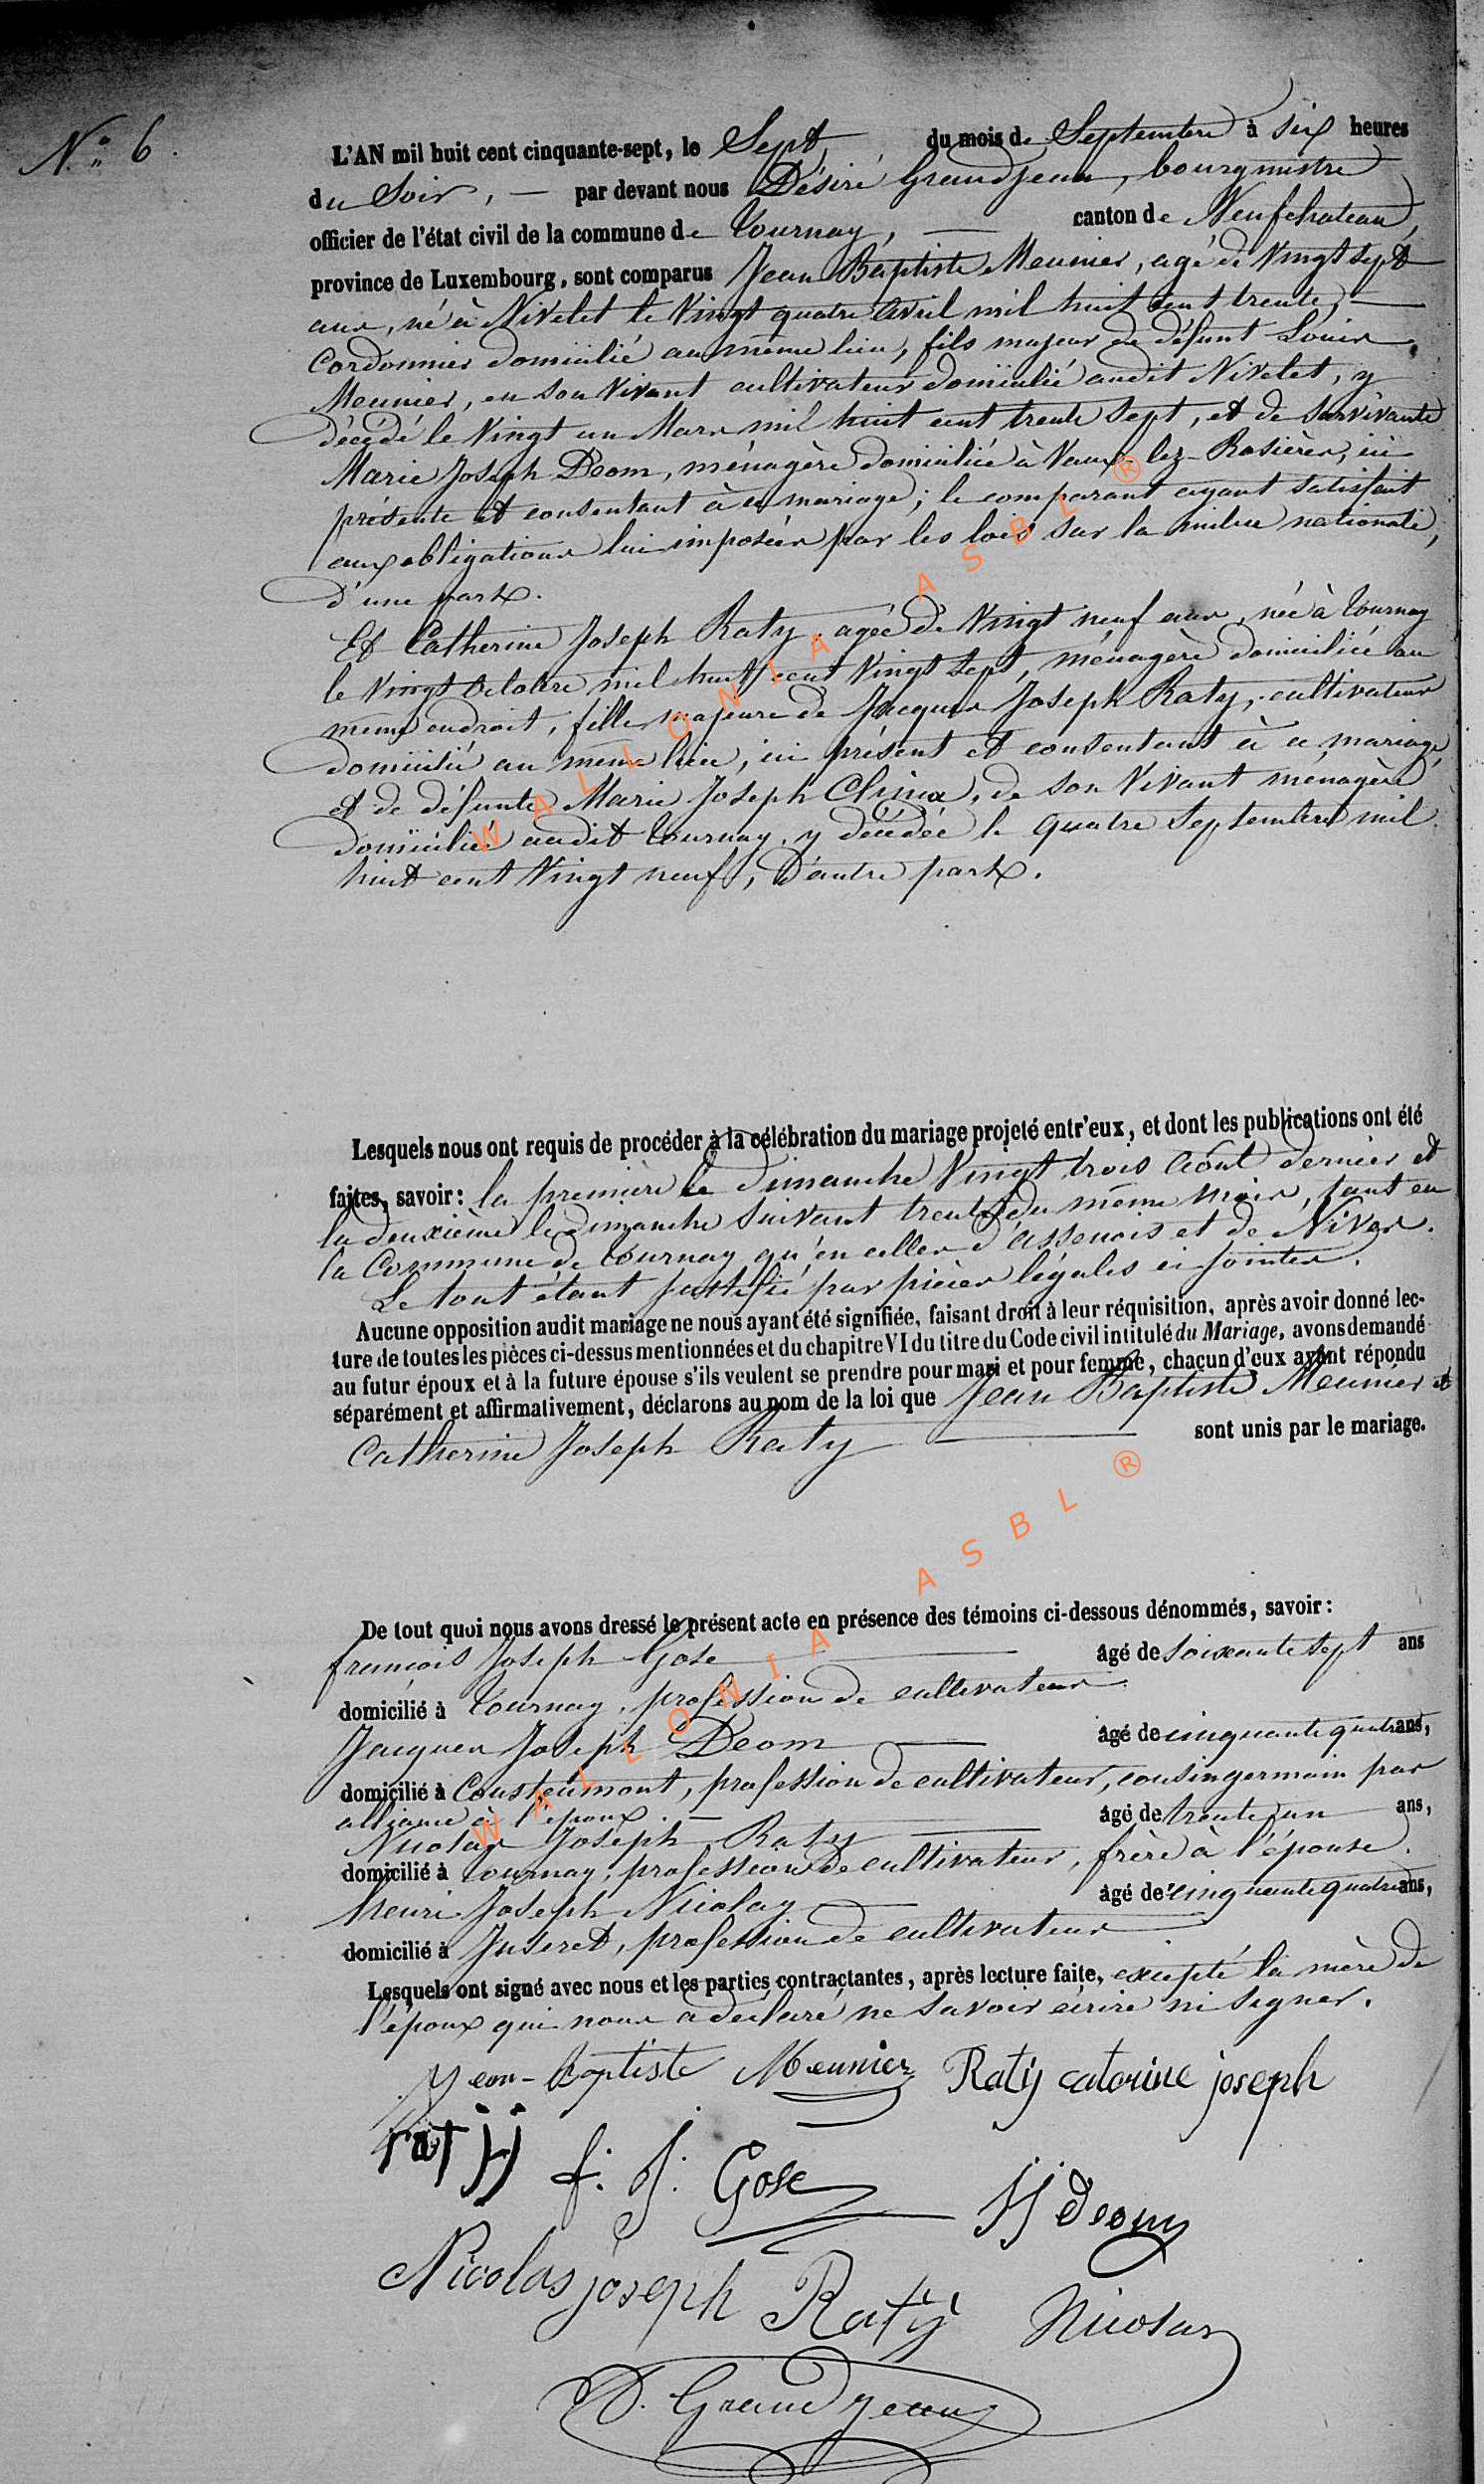 N.° 6.
L'AN mil huit cent cinquante-sept, le Sept, du mois de Septembre à six heures
du Soir, — par devant nous Désiré Grandjean, bourgmestre
officier de l'état civil de la commune de Tournay, — canton de Neufchateau,
province de Luxembourg, sont comparus Jean Baptiste Meunier, agé de Vingt sept
ans, né à Nivelet le Vingt quatre Avril mil huit cent trente, —
Cordonnier domicilié au même lieu, fils majeur de défunt Louis
Meunier, en son Vivant cultivateur domicilié audit Nivelet, y
décédé le Vingt un Mars mil huit cent trente sept, et de survivante
Marie Joseph Déom, ménagère domiciliée à Vaux-lez-Rosières, ici
présente et consentant à ce mariage; le comparant ayant satisfait
aux obligations lui imposées par les lois sur la milice nationale,
d'une part.
Et Catherine Joseph Raty, agée de Vingt neuf ans, née à Tournay
le Vingt Octobre mil huit cent Vingt sept, ménagère domiciliée au
même endroit, fille majeure de Jacques Joseph Raty, cultivateur
domicilié au même lieu, ici présent et consentant à ce mariage,
et de défunte Marie Joseph Clinx, de son Vivant ménagère
domiciliée audit Tournay, y décédée le quatre Septembre mil
huit cent Vingt neuf, D'autre part.
Lesquels nous ont requis de procéder à la célébration du mariage projeté entr'eux, et dont les publications ont été
faites, savoir: la première le Dimanche Vingt trois Août dernier et
la deuxième le Dimanche Suivant trente du même mois, tant en
la Commune de Tournay qu'en celles d'assenois et de Nives.
Le tout étant justifié par pièces légales ci jointes.
Aucune opposition audit mariage ne nous ayant été signifiée, faisant droit à leur réquisition, après avoir donné lec-
ture de toutes les pièces ci-dessus mentionnées et du chapitre VI du titre du Code civil intitulé du Mariage, avons demandé
au futur époux et à la future épouse s'ils veulent se prendre pour mari et pour femme, chacun d'eux ayant répondu
séparément et affirmativement, déclarons au nom de la loi que Jean Baptiste Meunier et
Catherine Joseph Raty — sont unis par le mariage.
De tout quoi nous avons dressé le présent acte en présence des témoins ci-dessous dénommés, savoir:
françois Joseph Gose — âgé de soixante sept ans
domicilié à Tournay, profession de cultivateur.
Jacques Joseph Déom — âgé de cinquante quatre ans,
domicilié à Cousteumont, profession de cultivateur, cousin germain par
alliance à l'époux. —
Nicolas Joseph Raty — âgé de trente un ans,
domicilié à Tournay, profession de cultivateur, frère à l'épouse.
Henri Joseph Nicolay — âgé de cinquante quatre ans,
domicilié à Juseret, profession de cultivateur —
Lesquels ont signé avec nous et les parties contractantes, après lecture faite, excepté la mère de
l'époux qui nous a déclaré ne savoir écrire ni signer.
Jean-Baptiste Meunier Raty catorine joseph
rat jj f. J. Gose JJ deom
Nicolas joseph Raty Nicolay
D. Grandjean
WALLONIA ASBL ®
WALLONIA ASBL ®